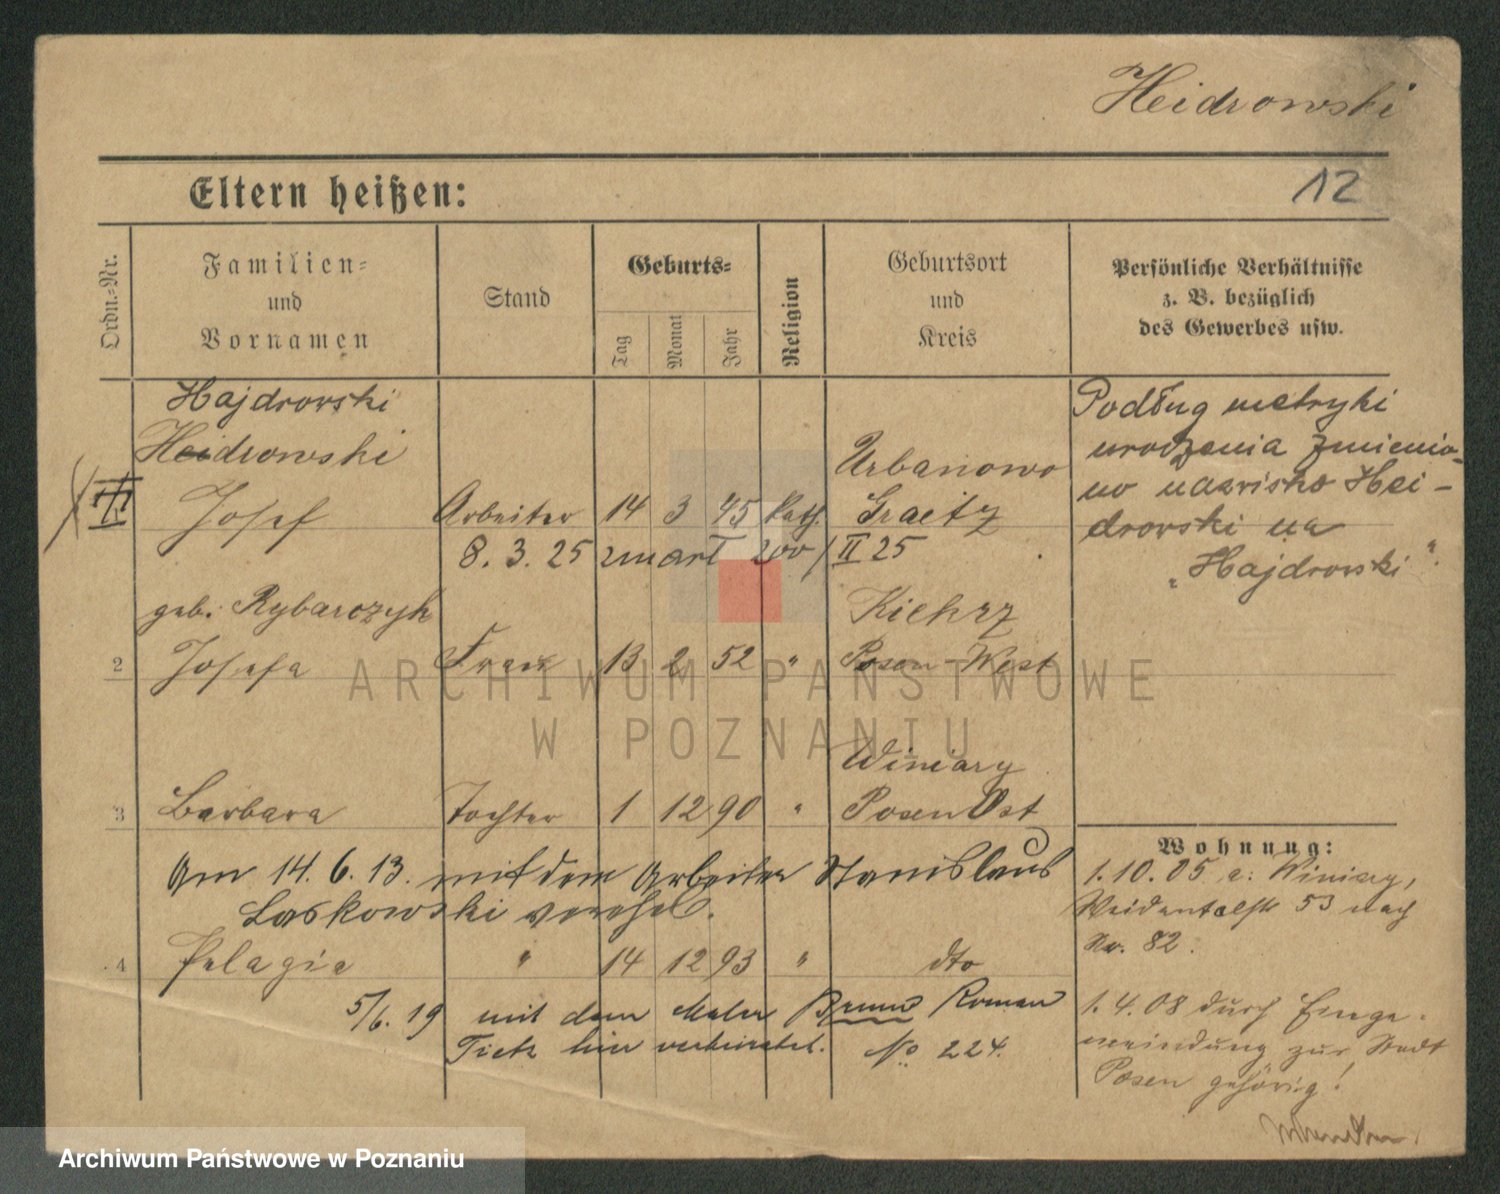 Heidrowski
12
Eltern heißen:
Ordn.-Nr.
Familien-
und
Vornamen
Stand
Geburts-
Tag
Monat
Jahr
Religion
Geburtsort
und
Kreis
Persönliche Verhältnisse
z. B. bezüglich
des Gewerbes usw.
Hajdrowski
Heidrowski
Josef Arbeiter 14 3 45 kath.
Urbanowo
Graetz
8. 3. 25 zmarł 200/II 25
Podług metryki
urodzenia zmienio-
no nazwisko Hei-
drowski na
"Hajdrowski".
geb. Rybarczyk
Kiekrz
2 Josefa Frau 13 2 52 " Posen-West
Winiary
3 Barbara Tochter 1 12 90 " Posen Ost
Am 14. 6. 13. mit dem Arbeiter Stanislaus
Laskowski verehel.
4 Pelagia " 14 12 93 " dto
5/6. 19 mit dem Maler Bruno Roman
Tietz hier verheiratet. No 224.
Wohnung:
1. 10. 05 a: Winiary,
Weidentalstr 53 nach
Nr. 82.
1. 4. 08 durch Einge-
meindung zur Stadt
Posen gehörig!
ARCHIWUM PAŃSTWOWE
W POZNANIU
Archiwum Państwowe w Poznaniu